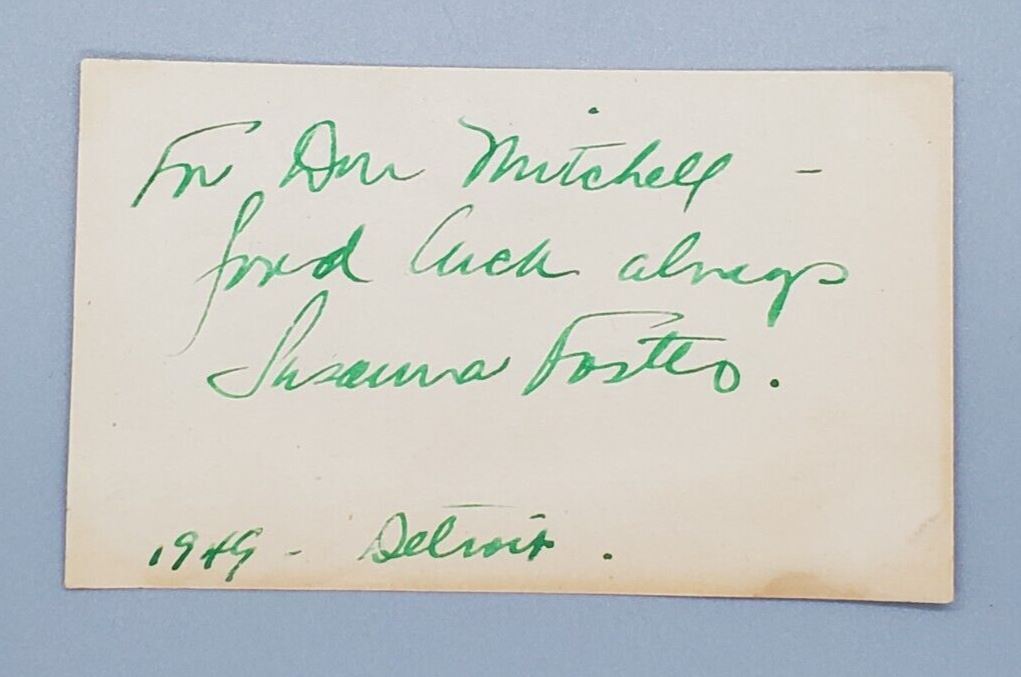 For Don Mitchell -
good luck always
Susanna Foster.
1949 - Detroit.